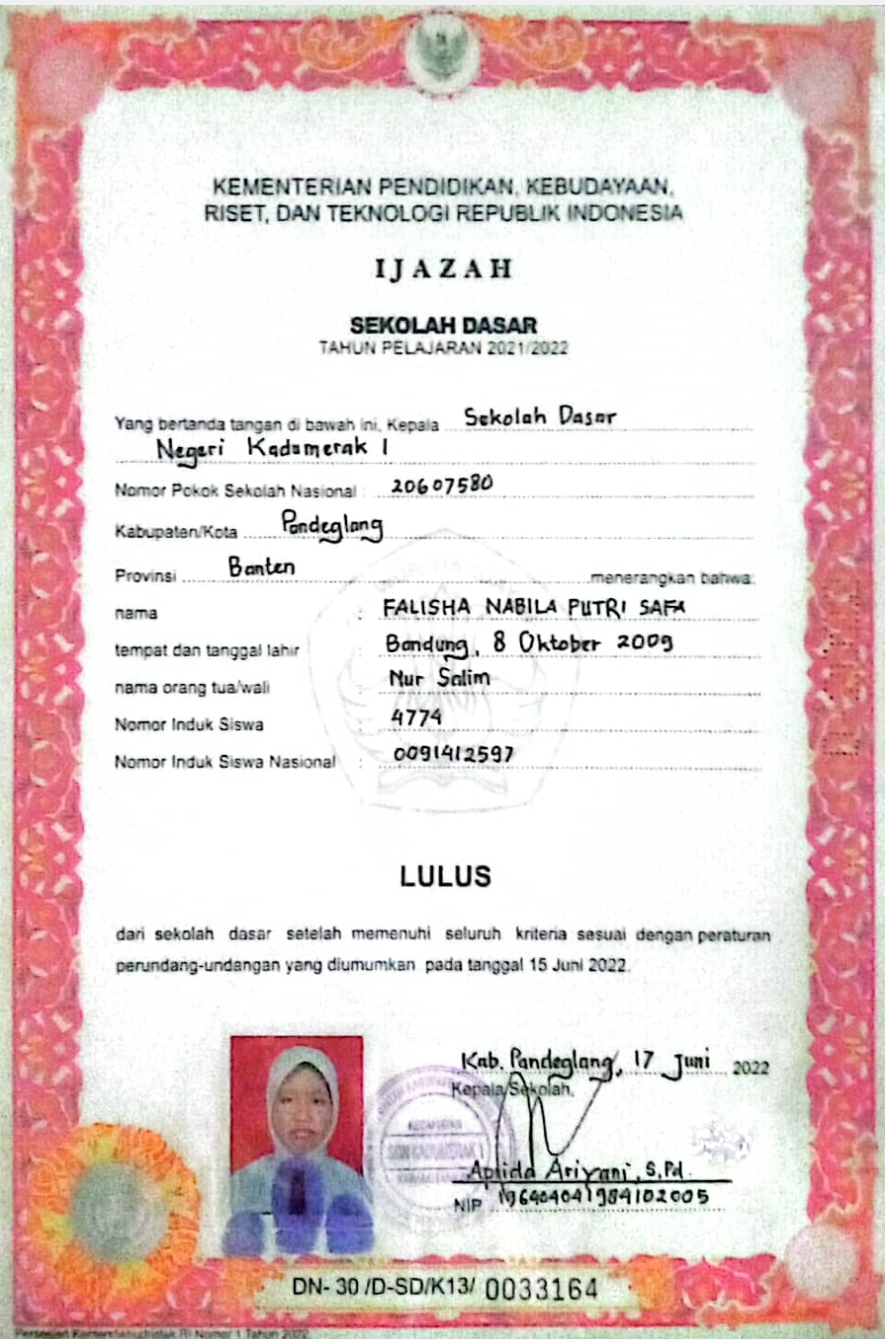 KEMENTERIAN PENDIDIKAN, KEBUDAYAAN,
RISET, DAN TEKNOLOGI REPUBLIK INDONESIA
IJAZAH
SEKOLAH DASAR
TAHUN PELAJARAN 2021/2022
Yang bertanda tangan di bawah ini, Kepala Sekolah Dasar
Negeri Kadumerak 1
Nomor Pokok Sekolah Nasional : 20607580
Kabupaten/Kota Pandeglang
Provinsi Banten menerangkan bahwa:
nama : FALISHA NABILA PUTRI SAFA
tempat dan tanggal lahir : Bandung, 8 Oktober 2009
nama orang tua/wali : Nur Salim
Nomor Induk Siswa : 4774
Nomor Induk Siswa Nasional : 0091412597
LULUS
dari sekolah dasar setelah memenuhi seluruh kriteria sesuai dengan peraturan
perundang-undangan yang diumumkan pada tanggal 15 Juni 2022.
Kab. Pandeglang, 17 Juni 2022
Kepala Sekolah,
SDN KADUMERAK 1
Aptida Ariyani, S.Pd.
NIP 196404041984102005
DN- 30 /D-SD/K13/ 0033164